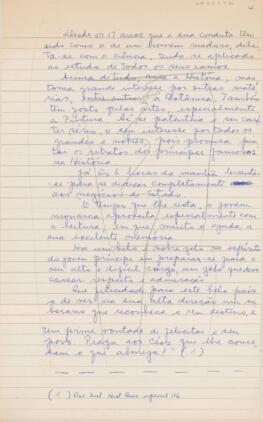 "Desde os 17 anos que a sua conduta tem
sido como a de um homem maduro, delei-
ta-se com a ciência, tendo se aplicado
ao estudo de todos os seus ramos.
Acima de tudo, a História, mas
toma grande interesse por outras maté-
rias, a Botânica. Também
tem gosto pelas artes, especialmente
a Pintura. Aí se patenteia o seu cará-
ter sério, o seu interesse por todos os
grandes e nobres, pois procura pin-
tar os retratos dos príncipes famosos
na História
Já às 6 horas da manhã levanta-
se para se dedicar completamente
aos negócios do Estado.
O tempo que lhe resta, o jovem
monarca aproveita, especialmente com
a leitura, em que muito o ajuda a
sua excelente memória.
Há um belo e nobre zelo no espírito
do jovem príncipe em preparar-se para o
seu alto e difícil cargo, um zelo que deve
causar respeito e admiração.
Que felicidade para este belo país
a de ver na sua alta direção um so-
berano que reconhece o seu destino, e
tem firme vontade de felicitar o seu
povo. Praza aos Céus que lhe conce-
dam o que almeja!" (1)
(1)